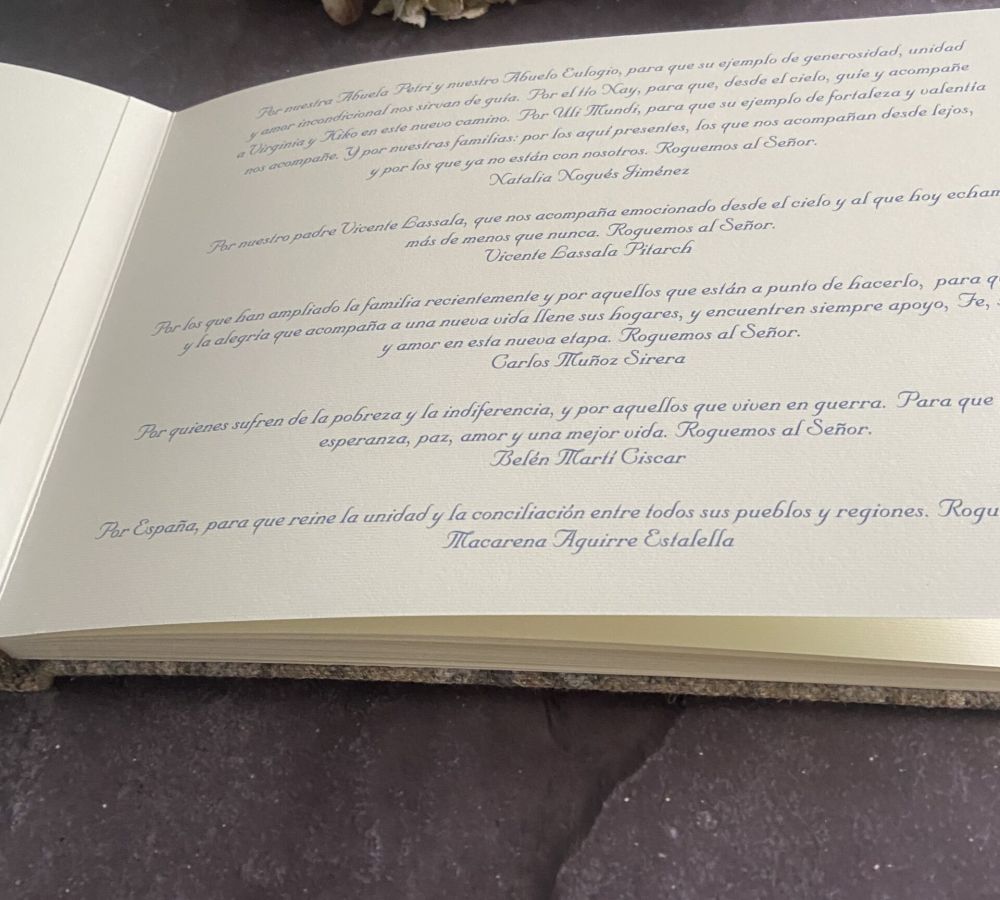 Por nuestra Abuela Petri y nuestro Abuelo Eulogio, para que su ejemplo de generosidad, unidad
y amor incondicional nos sirvan de guía. Por el tío Xay, para que, desde el cielo, guíe y acompañe
a Virginia y Kiko en este nuevo camino. Por Uli Mundi, para que su ejemplo de fortaleza y valentía
nos acompañe. Y por nuestras familias: por los aquí presentes, los que nos acompañan desde lejos,
y por los que ya no están con nosotros. Roguemos al Señor.
Natalia Nogués Jiménez
Por nuestro padre Vicente Lassala, que nos acompaña emocionado desde el cielo y al que hoy echam
más de menos que nunca. Roguemos al Señor.
Vicente Lassala Pitarch
Por los que han ampliado la familia recientemente y por aquellos que están a punto de hacerlo, para q
y la alegría que acompaña a una nueva vida llene sus hogares, y encuentren siempre apoyo, Fe,
y amor en esta nueva etapa. Roguemos al Señor.
Carlos Muñoz Sirera
Por quienes sufren de la pobreza y la indiferencia, y por aquellos que viven en guerra. Para que
esperanza, paz, amor y una mejor vida. Roguemos al Señor.
Belén Martí Ciscar
Por España, para que reine la unidad y la conciliación entre todos sus pueblos y regiones. Rogu
Macarena Aguirre Estalella